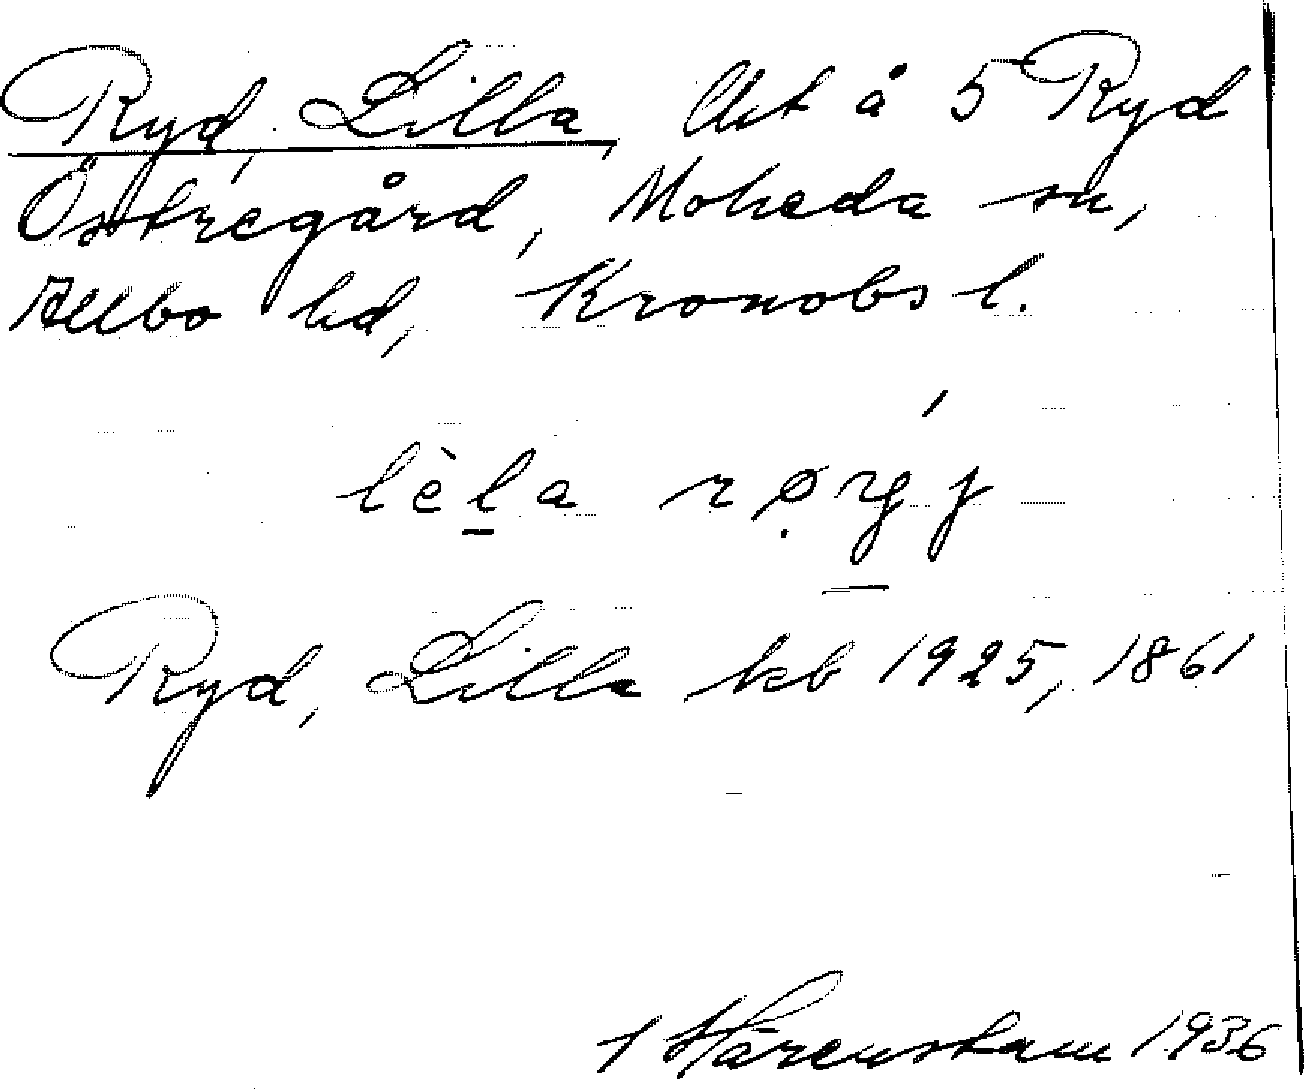 Ryd, Lilla, Urt å 5 Ryd
Östregård, Moheda sn,
Allbo hd, Kronobs l.
lèḻa
Ryd, Lilla kb 1925, 1861
Härenstam 1936